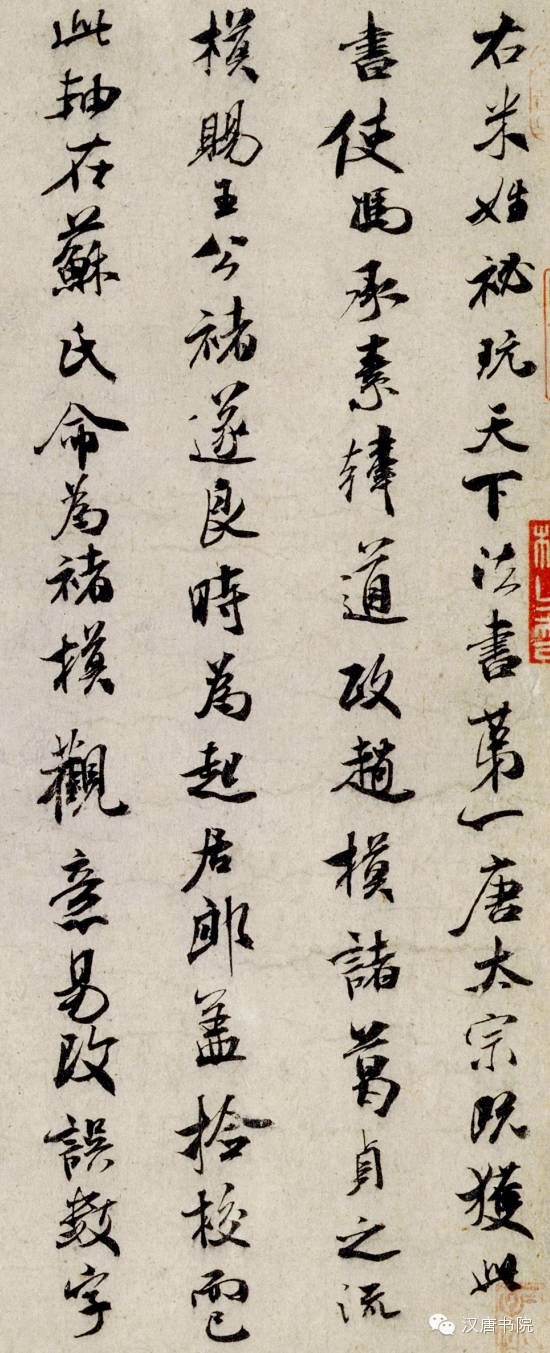 右米姓祕玩天下法書第一唐太宗既獲此
書使馮承素韓道政趙模諸葛貞之流
模賜王公褚遂良時為起居郎蓋撿校而已
此軸在蘇氏命為褚模觀意易改誤數字
汉唐书院